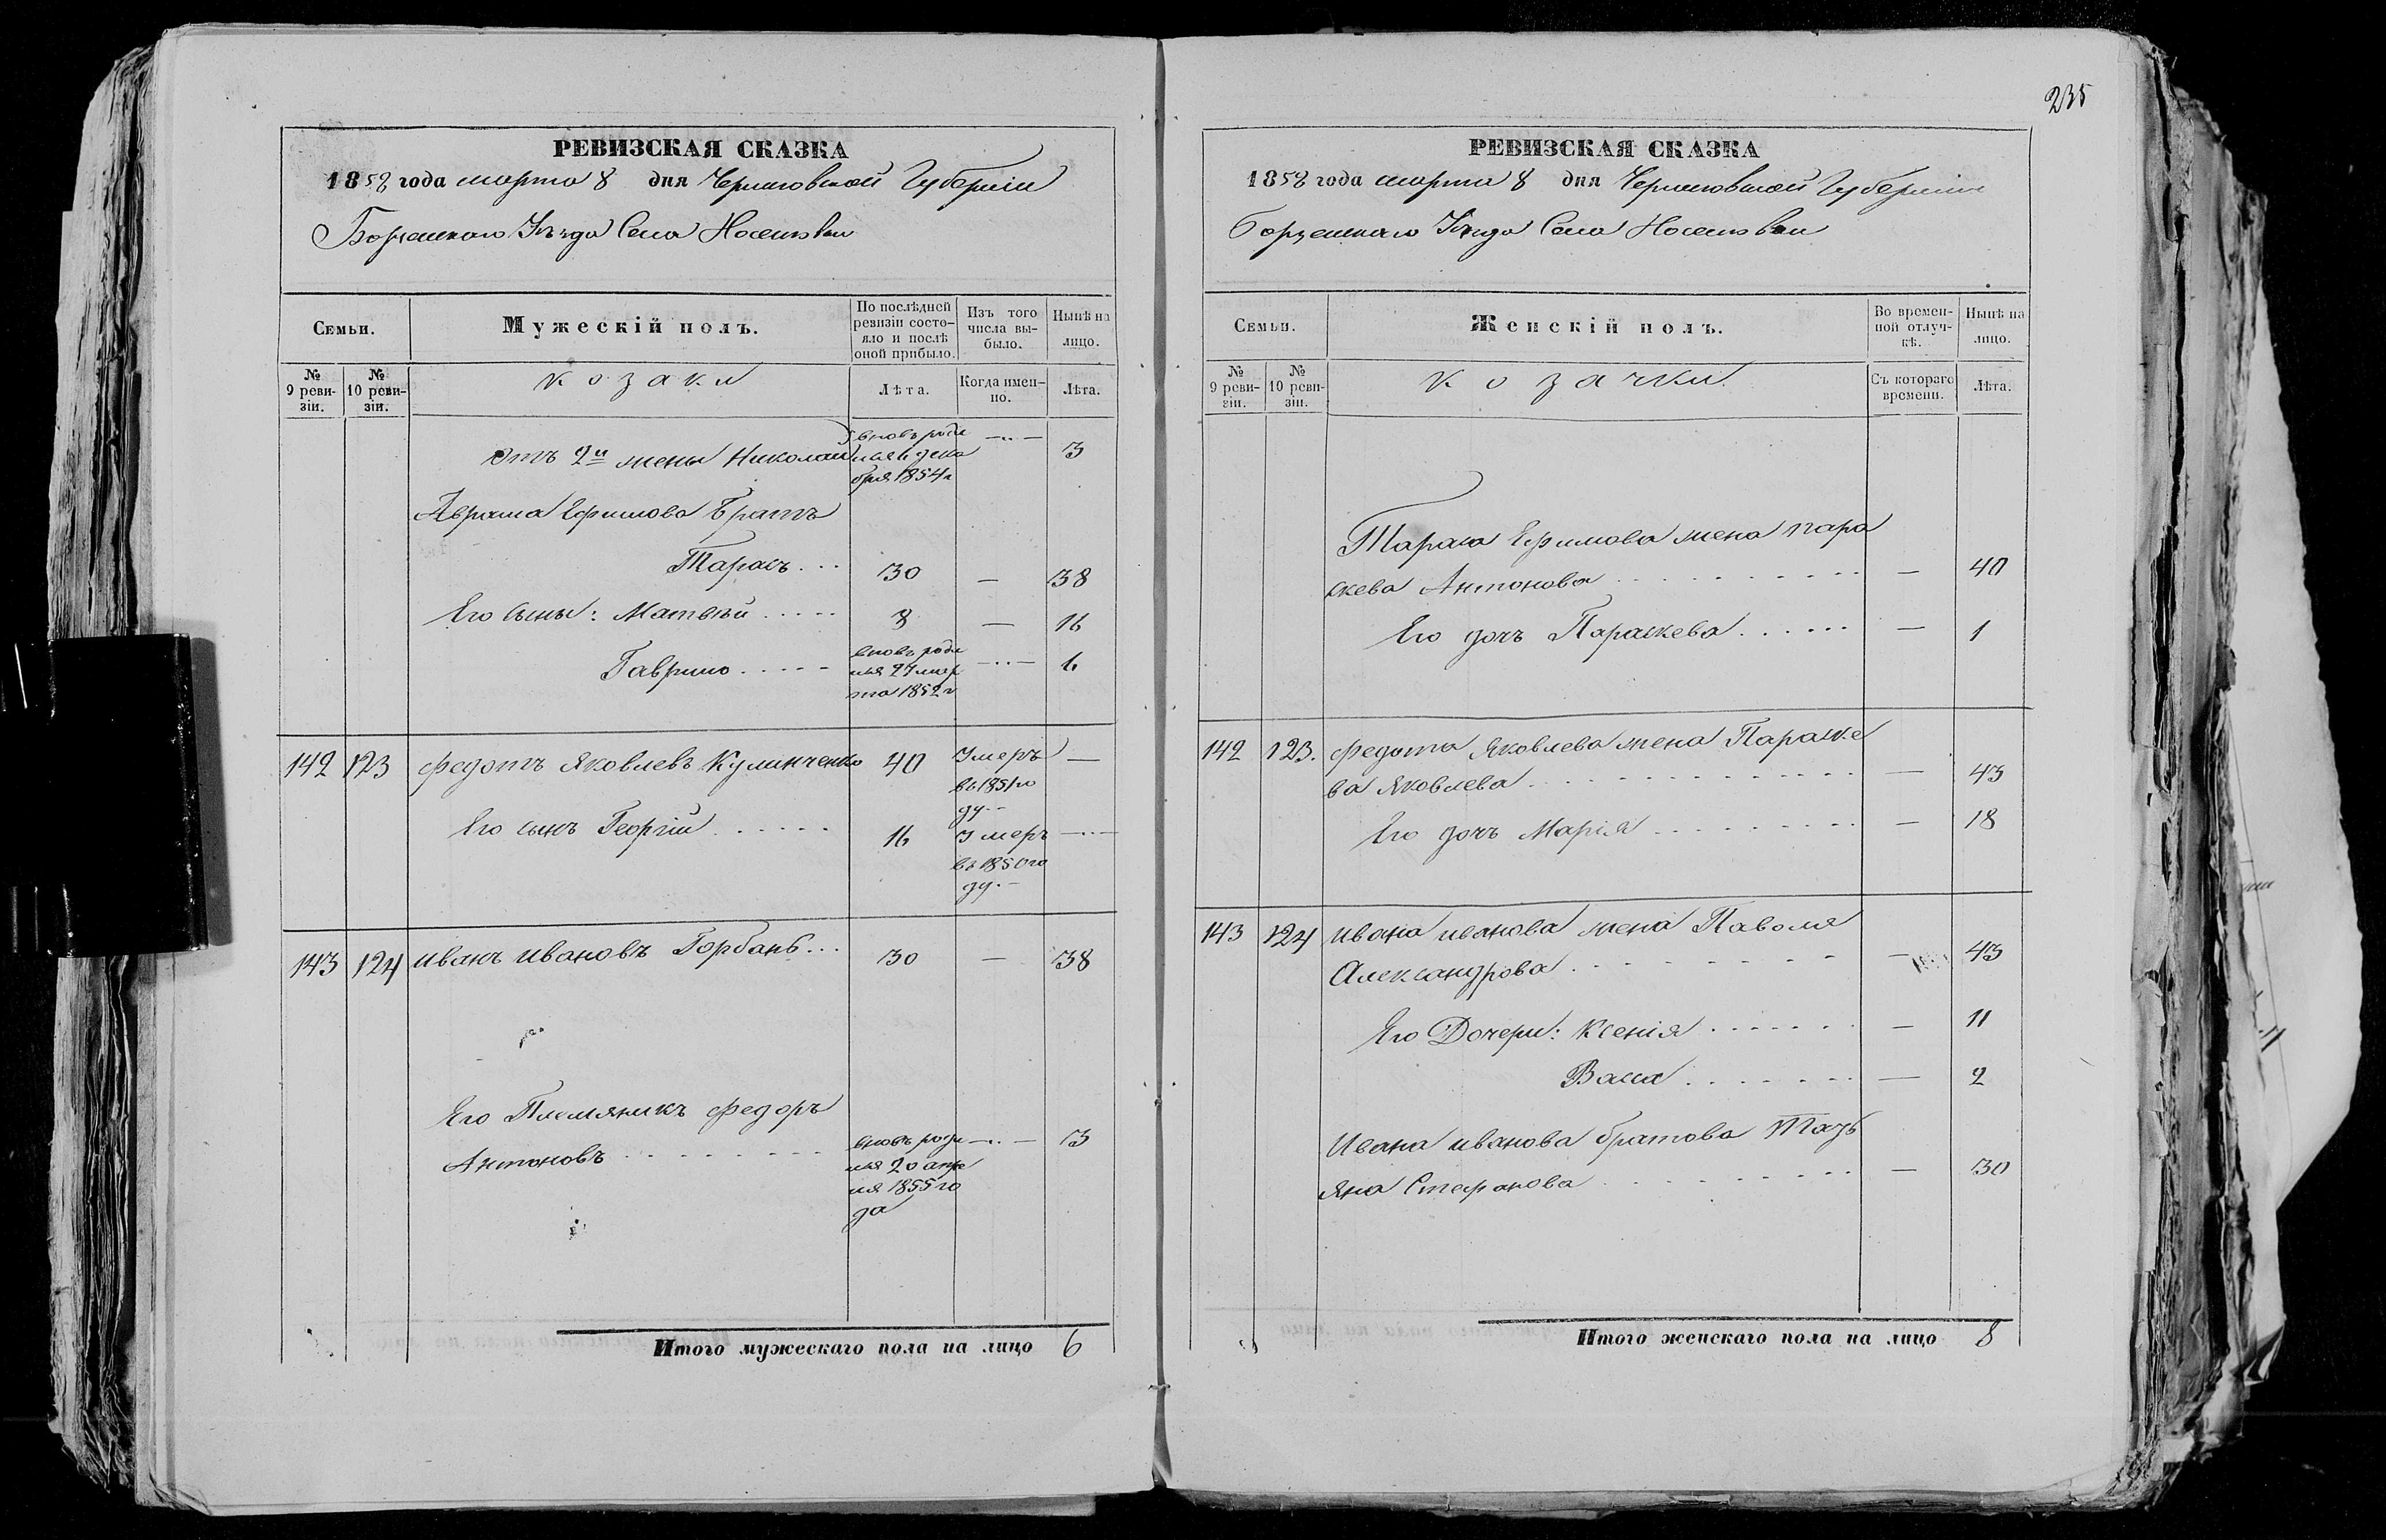 235
РЕВИЗСКАЯ СКАЗКА
1858 года марта 8 дня Черниговской Губернии
Борзенского Уѣзда Села Носелювки
Семьи.
Мужескій полъ.
По послѣдней ревизіи состояло и послѣ оной прибыло.
Изъ того числа выбыло.
Нынѣ на лицо.
№ 9 ревизіи.
№ 10 ревизіи.
козаки
Лѣта.
Когда именно.
Лѣта.
Отъ 2й жены Николай вновь роди — 3
лся декабря 1854 г
Аврама Ефимова Братъ
Тарасъ . . . 30 — 38
Его сыны: Матвѣй . . . . 8 — 16
Гаврило . . . . . вновь роди — 6
лся 27 мар
та 1852 г
142 123 Федотъ Яковлевъ Кулинченко 40 Умеръ —
въ 1851 го
ду
Его сынъ Георгій . . . . . . 16 Умеръ —
въ 1850 го
ду
143 124 Иванъ Ивановъ Горбань . . . 30 — 38
Его Племяникъ Федоръ
Антоновъ . . . . . . . . вновь роди — 3
лся 20 апре
ля 1855 го
да
Итого мужескаго пола на лицо 6
РЕВИЗСКАЯ СКАЗКА
1858 года марта 8 дня Черниговской Губерніи
Борзенского Уѣзда Села Носелювки
Семьи.
Женскій полъ.
Во временной отлучкѣ.
Нынѣ на лицо.
№ 9 ревизіи.
№ 10 ревизіи.
козачки
Съ котораго времени.
Лѣта.
Тараса Ефимова жена Пара
скева Антонова . . . . . . . . — 40
Его дочь Параскева . . . . . . — 1
142 123. Федота Яковлева жена Параске
ва Яковлева . . . . . . . . . . — 43
Его дочь Марія . . . . . . . . — 18
143 124 Ивана Иванова жена
Александрова . . . . . . . . — 43
Его Дочери: Ксенія . . . . . . — 11
Васса . . . . . . . — 2
Ивана Иванова братова Тать
яна Стефанова . . . . . . . . — 30
Итого женскаго пола на лицо 8